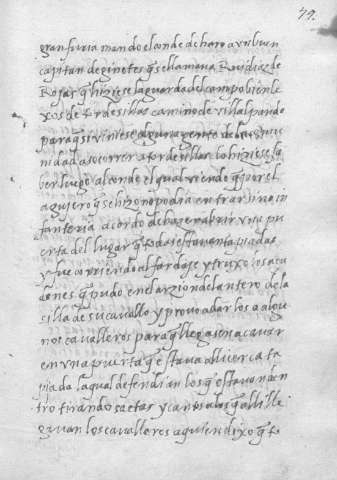 79.
gran furia mando el conde de haro a vn buen
capitan de ginetes q̃ se llamava Ruidiaz de
Rojas q̃ hiziese la guarda del campo bien le
xos de tordesillas camino de villalpando
para q̃ si viniese alguna gente de la comu
nidad a socorrer a tordesillas lo hiziese sa
ber luego al conde el qual viendo q̃ por el
agujero q̃ se hizo no podia entrar sino in
fanteria acordo de hazer abrir vna pu
erta del lugar q̃ todas estavan tapiadas
y fue corriendo al fardaje y truxo los aça
dones q̃ pudo en el arzon delantero de la
silla de su cavallo y provo a darlos a algu
nos cavalleros para q̃ llegasen a cavar
en vna puerta q̃ estava alli cerca ta
piada la qual defendian los q̃ estavan den
tro tirando saetas y cantos a los q̃ alli lle
gavan los cavalleros aquien dixo q̃ to